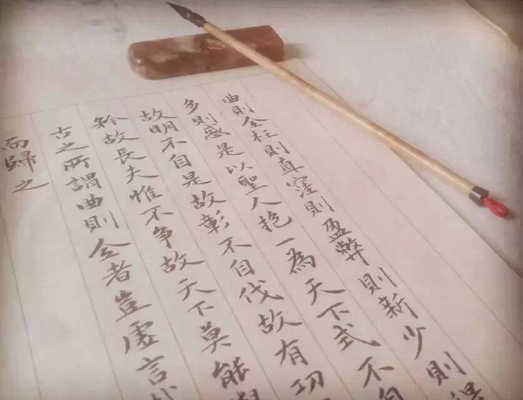 曲則全枉則直窪則盈弊則新少則
多則惑是以聖人抱一為天下式不自
故明不自是故彰不自伐故有功
矜故長夫惟不争故天下莫能
古之所謂曲則全者豈虛言
而歸之